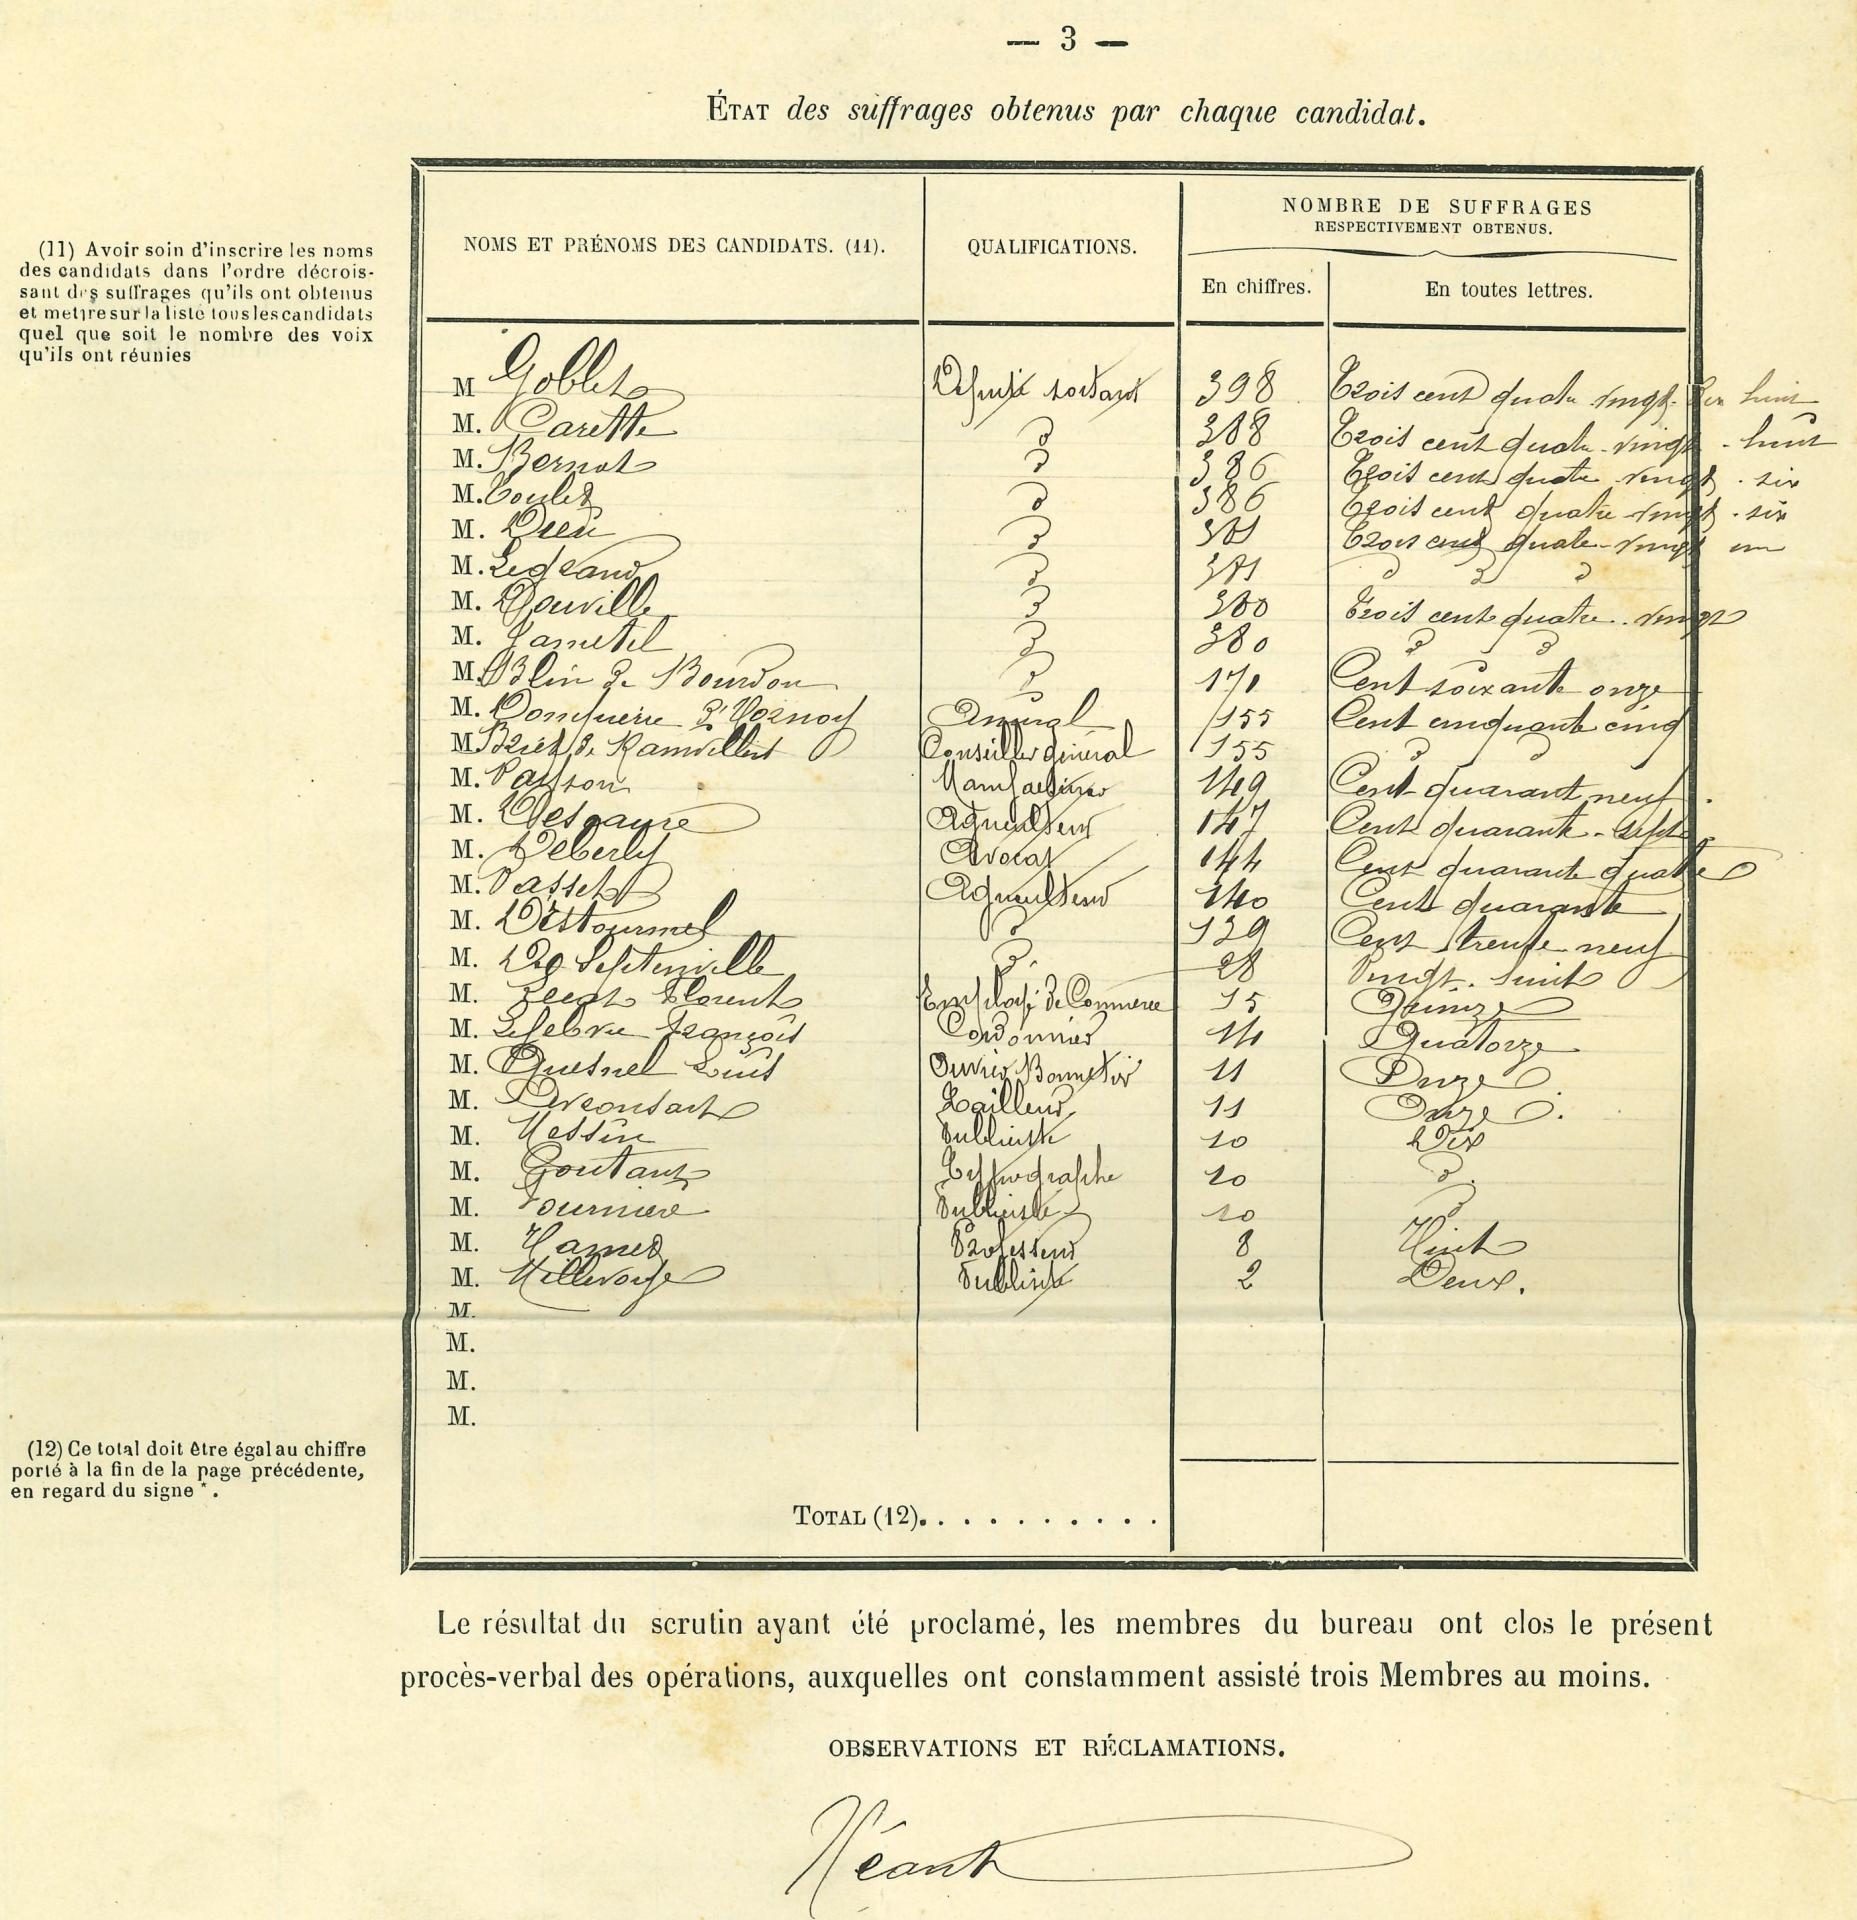 — 3 —
ÉTAT des suffrages obtenus par chaque candidat.
(11) Avoir soin d'inscrire les noms
des candidats dans l'ordre décrois-
sant des suffrages qu'ils ont obtenus
et mettre sur la liste tous les candidats
quel que soit le nombre des voix
qu'ils ont réunies
NOMS ET PRÉNOMS DES CANDIDATS. (11). QUALIFICATIONS. NOMBRE DE SUFFRAGES
RESPECTIVEMENT OBTENUS.
En chiffres. En toutes lettres.
M Goblet Député sortant 398 Trois cent quatre vingt dix huit
M. Carette 388 Trois cent quatre-vingt-huit
M. Bernot 386 Trois cent quatre vingt-six
M. Coulet 386 Trois cent quatre vingt-six
M. Dieu 381 Trois cent quatre-vingt un
M. Legrand 381
M. Douville 380 Trois cent quatre-vingt
M. Jametel 380
M. Blin de Bourdon 171 Cent soixante onze
M. Domquerre d'Vosnoy Amiral 155 Cent cinquante cinq
M. Briet de Rainvillers Conseiller général 155
M. 149 Cent quarant neuf.
M. Descaure Agriculteur 147 Cent quarante-sept
M. Deberly Avocat 144 Cent quarante quatre
M. Vasset Agriculteur 140 Cent quarante
M. D'Estourmel 139 Cent trente neuf
M. De Septenville 28 Vingt-huit
M. Florent Employé de Commerce 15 Quinze
M. Lefebvre François Cordonnier 14 Quatorze
M. Quesnel Louis Ouvrier Bonnetier 11 Onze
M. Tailleur 11 Onze.
M. Messin Publiciste 10 Dix
M. Goutant Typographe 10
M. Fournière Publiciste 10
M. Hamet Professeur 8 Huit
M. Millevoye Publiciste 2 Deux.
M.
M.
M.
M.
(12) Ce total doit être égal au chiffre
porté à la fin de la page précédente,
en regard du signe *.
TOTAL (12). . . . . . . . . .
Le résultat du scrutin ayant été proclamé, les membres du bureau ont clos le présent
procès-verbal des opérations, auxquelles ont constamment assisté trois Membres au moins.
OBSERVATIONS ET RÉCLAMATIONS.
Néant